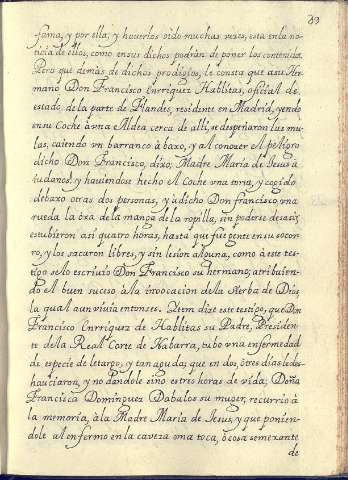 89
fama, y por ella; y haverlos oido muchas vezes, esta en la no-
ticia de ellos, como en sus dichos podrán deponer los contenidos.
Pero que demàs de dichos prodigios, le consta que a su Her-
mano Don Francisco Enrriquez Hablitas, oficial de
estado de la parte de Flandes, residente en Madrid, yendo
en su Coche à vna Aldea cerca de alli, se despeñaron las mu-
las, caiendo vn barranco à baxo, y al conocer el peligro
dicho Don Francisco, dixo: Madre Maria de Jesus à
iudanos: y haviendos hecho el Coche vna torta, y cogido
debaxo otras dos personas, y à dicho Don Francisco, vna
rueda la oxa de la manga de la ropilla, sin poderse desasir,
estubieron asi quatro horas, hasta que fue gente en su socor-
ro, y los sacaron libres, y sin lesion alguna, como à este tes-
tigo se lo escriuio Don Francisco su hermano; atribuien-
do el buen suceso à la inuocacion de la Sierba de Dios,
la qual aun viuia entonses. Ytem dize este testigo, que Don
Francisco Enrriquez de Hablitas su Padre, Presiden-
te de la Real Corte de Nabarra, tubo vna enfermedad
de especie de letargo, y tan aguda, que en dos, ò tres dias le des-
hauciaron, y no dandole sino estres horas de vida; Doña
Francisca Dominguez Dabalos su muger, recurriò à
la memoria, à la Madre Maria de Jesus, y que ponien-
dole al enfermo en la caveza vna toca, ò cosa semexante
de